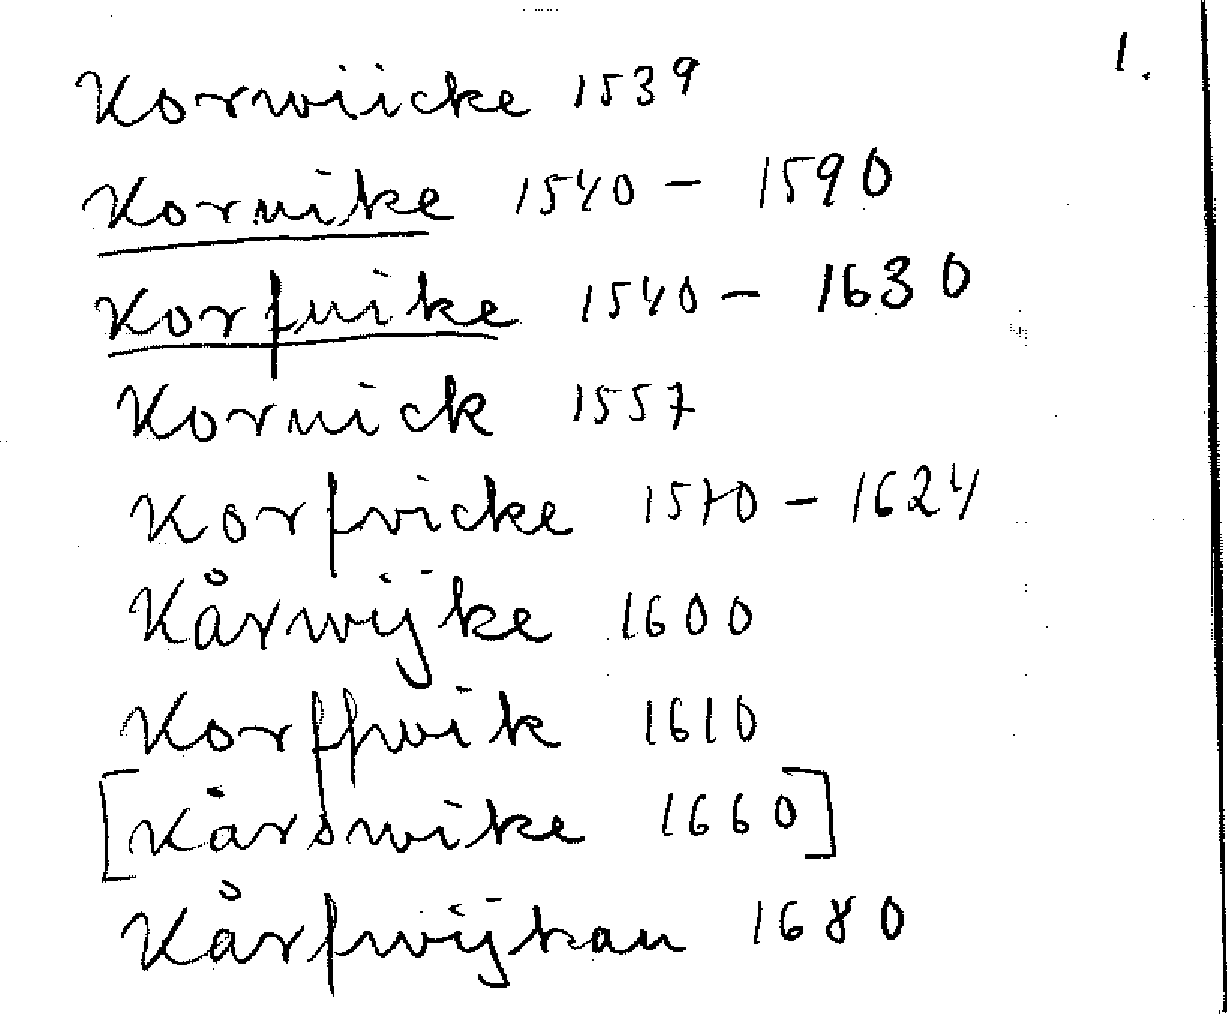 1.
Korwiicke 1539
Korwike 1540 - 1590
Korfwike 1540 - 1630
Korwick 1557
Korfvicke 1570 - 1624
Kårwijke 1600
Korffwik 1610
[Kårswike 1660]
Kårfwijkan 1680